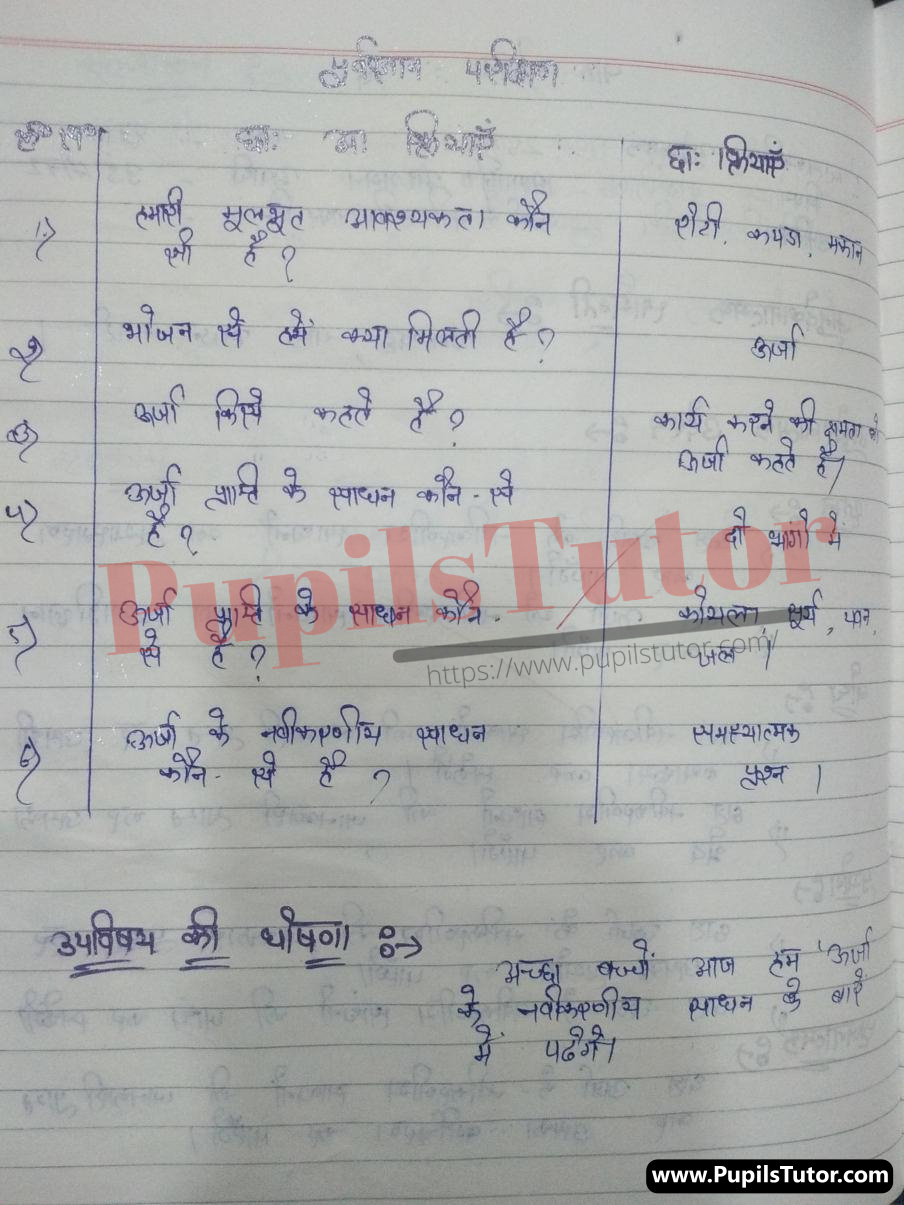 पूर्वज्ञान परीक्षण
क्र० सं० छा० अ० क्रियाएँ छा० क्रियाएँ
1) हमारी मूलभूत आवश्यकता कौन रोटी, कपडा, मकान
सी है ?
2) भोजन से हमें क्या मिलती है ? ऊर्जा
3) ऊर्जा किसे कहते है ? कार्य करने की क्षमता को
ऊर्जा कहते है।
4) ऊर्जा प्राप्ति के साधन कौन-से
है ? दो भागो में
5) ऊर्जा प्राप्ति के साधन कौन- कोयला, सूर्य, पवन,
से है ? जल ।
6) ऊर्जा के नवीकरणीय साधन समस्यात्मक
कौन-से है ? प्रश्न ।
उपविषय की घोषणा :->
अच्छा बच्चों आज हम 'ऊर्जा
के नवीकरणीय साधन के बारे
में पढेगे।
PupilsTutor
https://www.pupilstutor.com/
www.PupilsTutor.Com